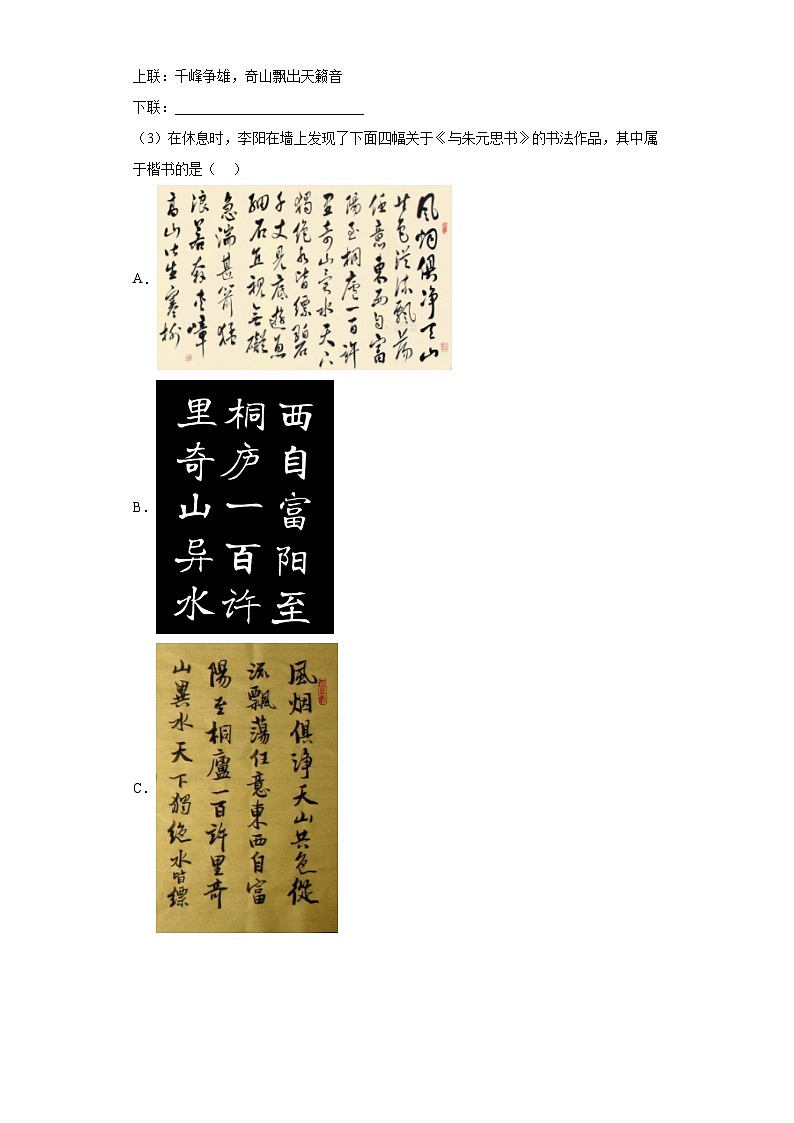 上联：千峰争雄，奇山飘出天籁音
下联：
（3）在休息时，李阳在墙上发现了下面四幅关于《与朱元思书》的书法作品，其中属
于楷书的是（ ）
A.
风烟俱净天山
共色从流飘荡
任意东西自富
陽至桐廬一百许
里奇山异水天下
獨绝水皆缥碧
千丈見底游魚
细石直視无礙
急湍甚箭猛
浪若奔夹嶂
高山皆生寒樹
B.
西自富阳至
桐庐一百许
里奇山异水
C.
風烟俱淨天山共色從
流飄蕩任意東西自富
陽至桐廬一百許里奇
山異水天下獨絶水皆缥